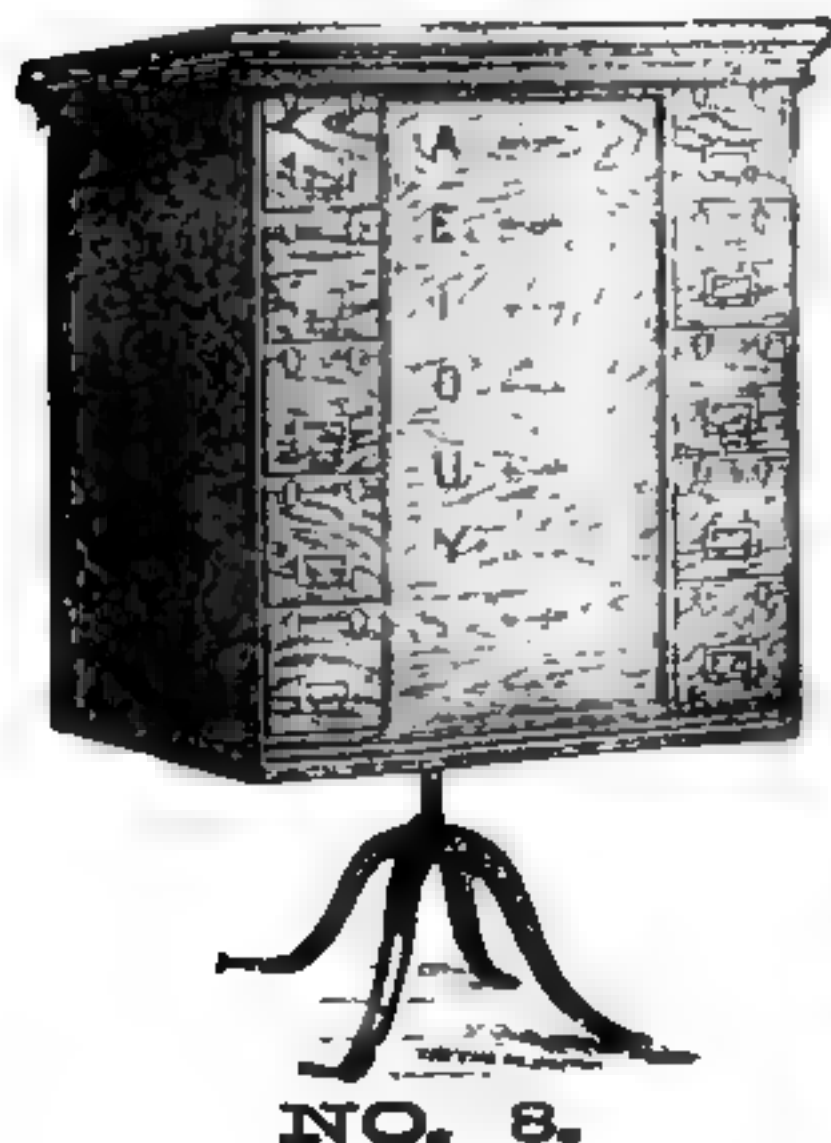 A
E
I
O
U
Y
NO. 8.